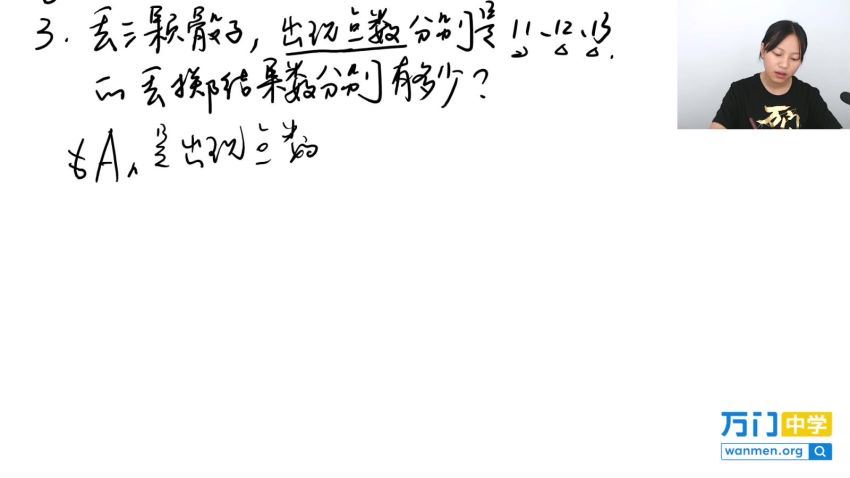 3. 丢三颗骰子，出现点数分别是11、12、13
的丢掷结果数分别有多少？
设A₁是出现点数
万门
万门中学
wanmen.org